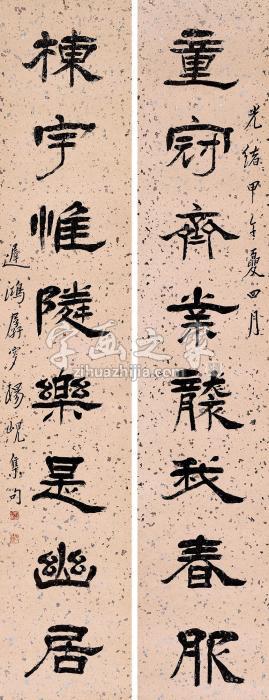 光緒甲午夏四月
童冠齊業襲我春服
棟宇惟隣樂是幽居
遲鴻孱叟楊峴集句
字画之家
zihuazhijia.com